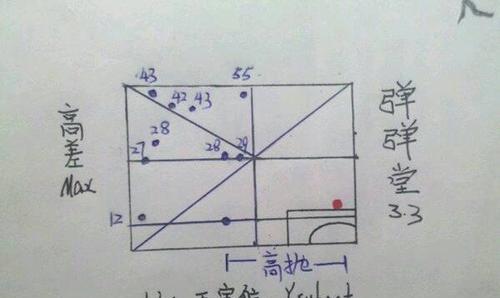 43
55
42
43
28
27
28
29
12
高差
Max
高抛
弹弹堂
3.3